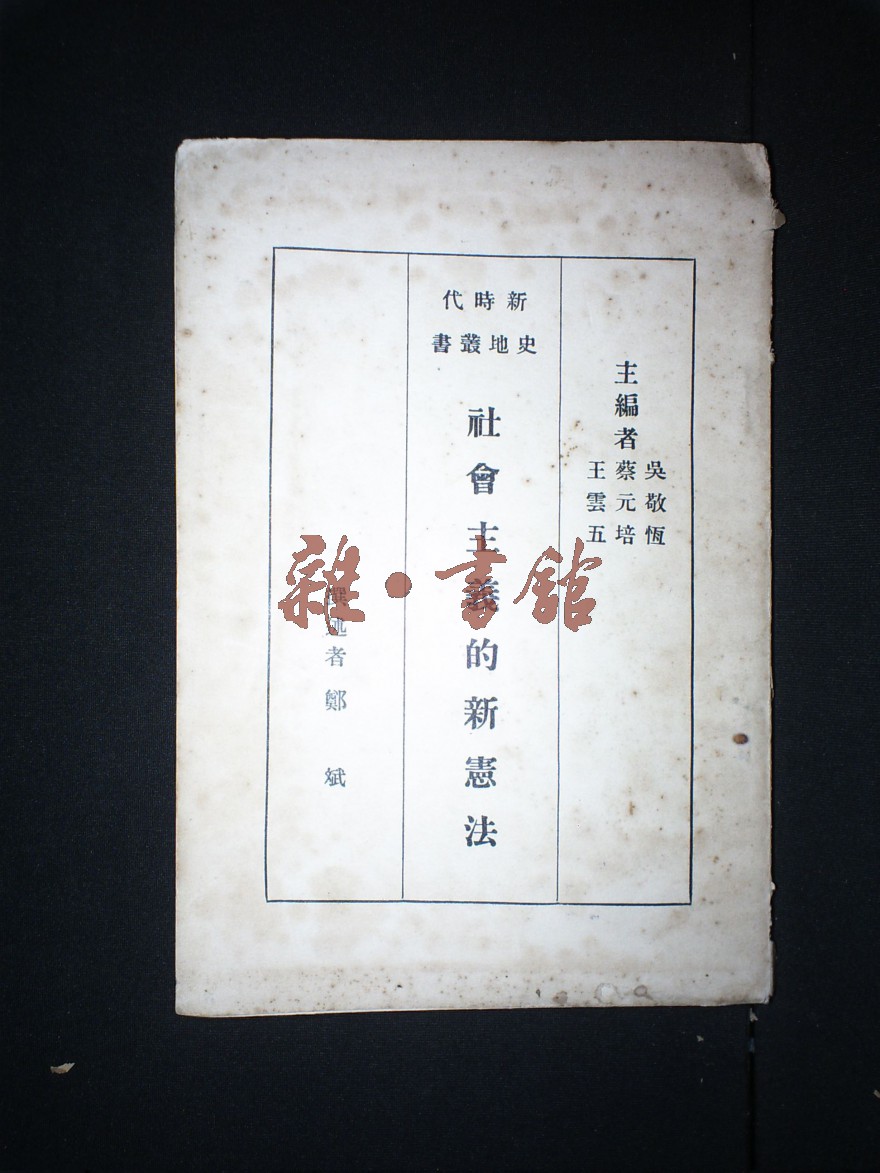 主編者
吳敬恆
蔡元培
王雲五
新時代
史地叢書
社會主義的新憲法
撰述者鄭斌
雜·書舘